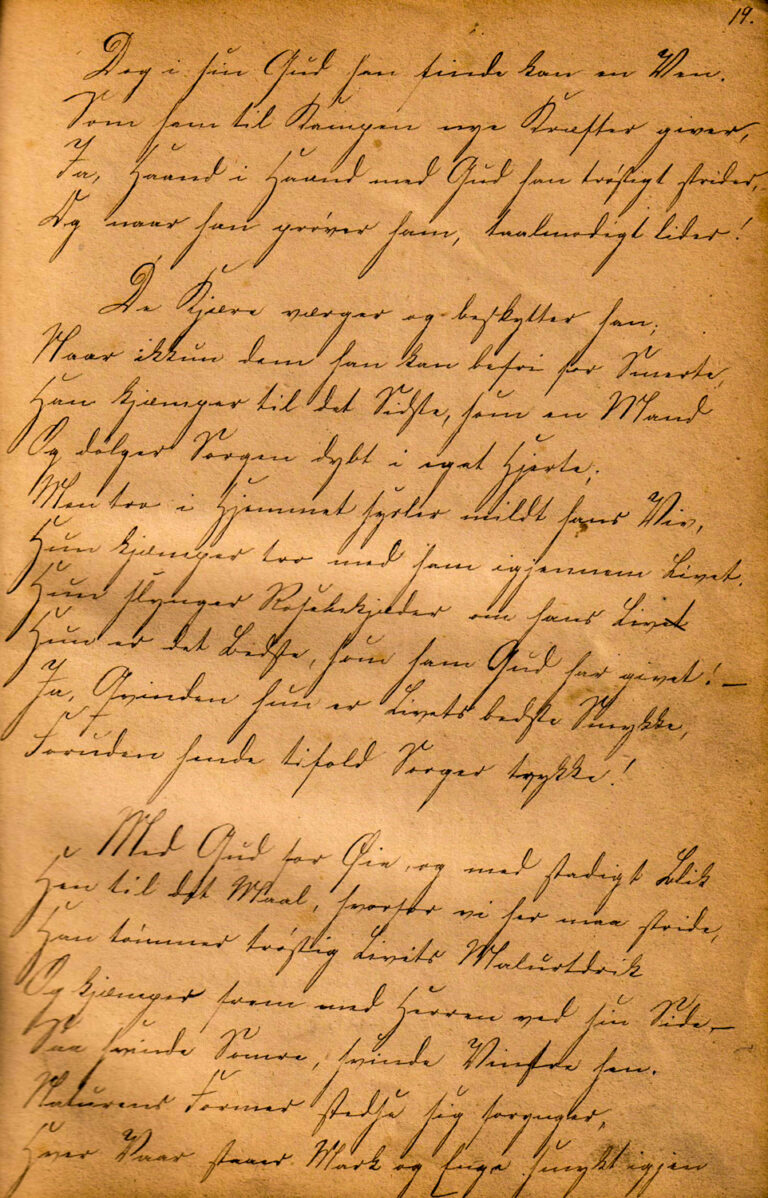 19.
Dog i sin Gud han finde kan en Ven.
Som ham til Kampen nye Kræfter giver,
Ja, Haand i Haand med Gud han trøstigt strider,
Og naar han prøver ham, taalmodigt lider!
De Kjære værger og beskytter han,
Naar ikkun dem han kan befri for Smerte,
Han kjæmper til det Sidste, som en Mand
Og dølger Sorgen dybt i eget Hjerte;
Men tro i Hjemmet sysler mildt hans Viv,
Hun kjæmper tro med ham igjennem Livet.
Hun slynger Rosenkjæder om hans Liv
Hun er det Bedste, som ham Gud har givet! —
Ja, Qvinden hun er Livets bedste Smykke,
Foruden hende tifold Sorger trykke!
Med Gud for Øie, og med stadigt Blik
Hen til det Maal, hvorfor vi her maa stride,
Han tømmer trøstig Livets Malurtdrik
Og kjæmper frem med Herren ved sin Side, —
Saa svinde Somre, svinde Vintre hen.
Naturens Former stedse sig forynger,
Hver Vaar staaer Mark og Enge smykt igjen